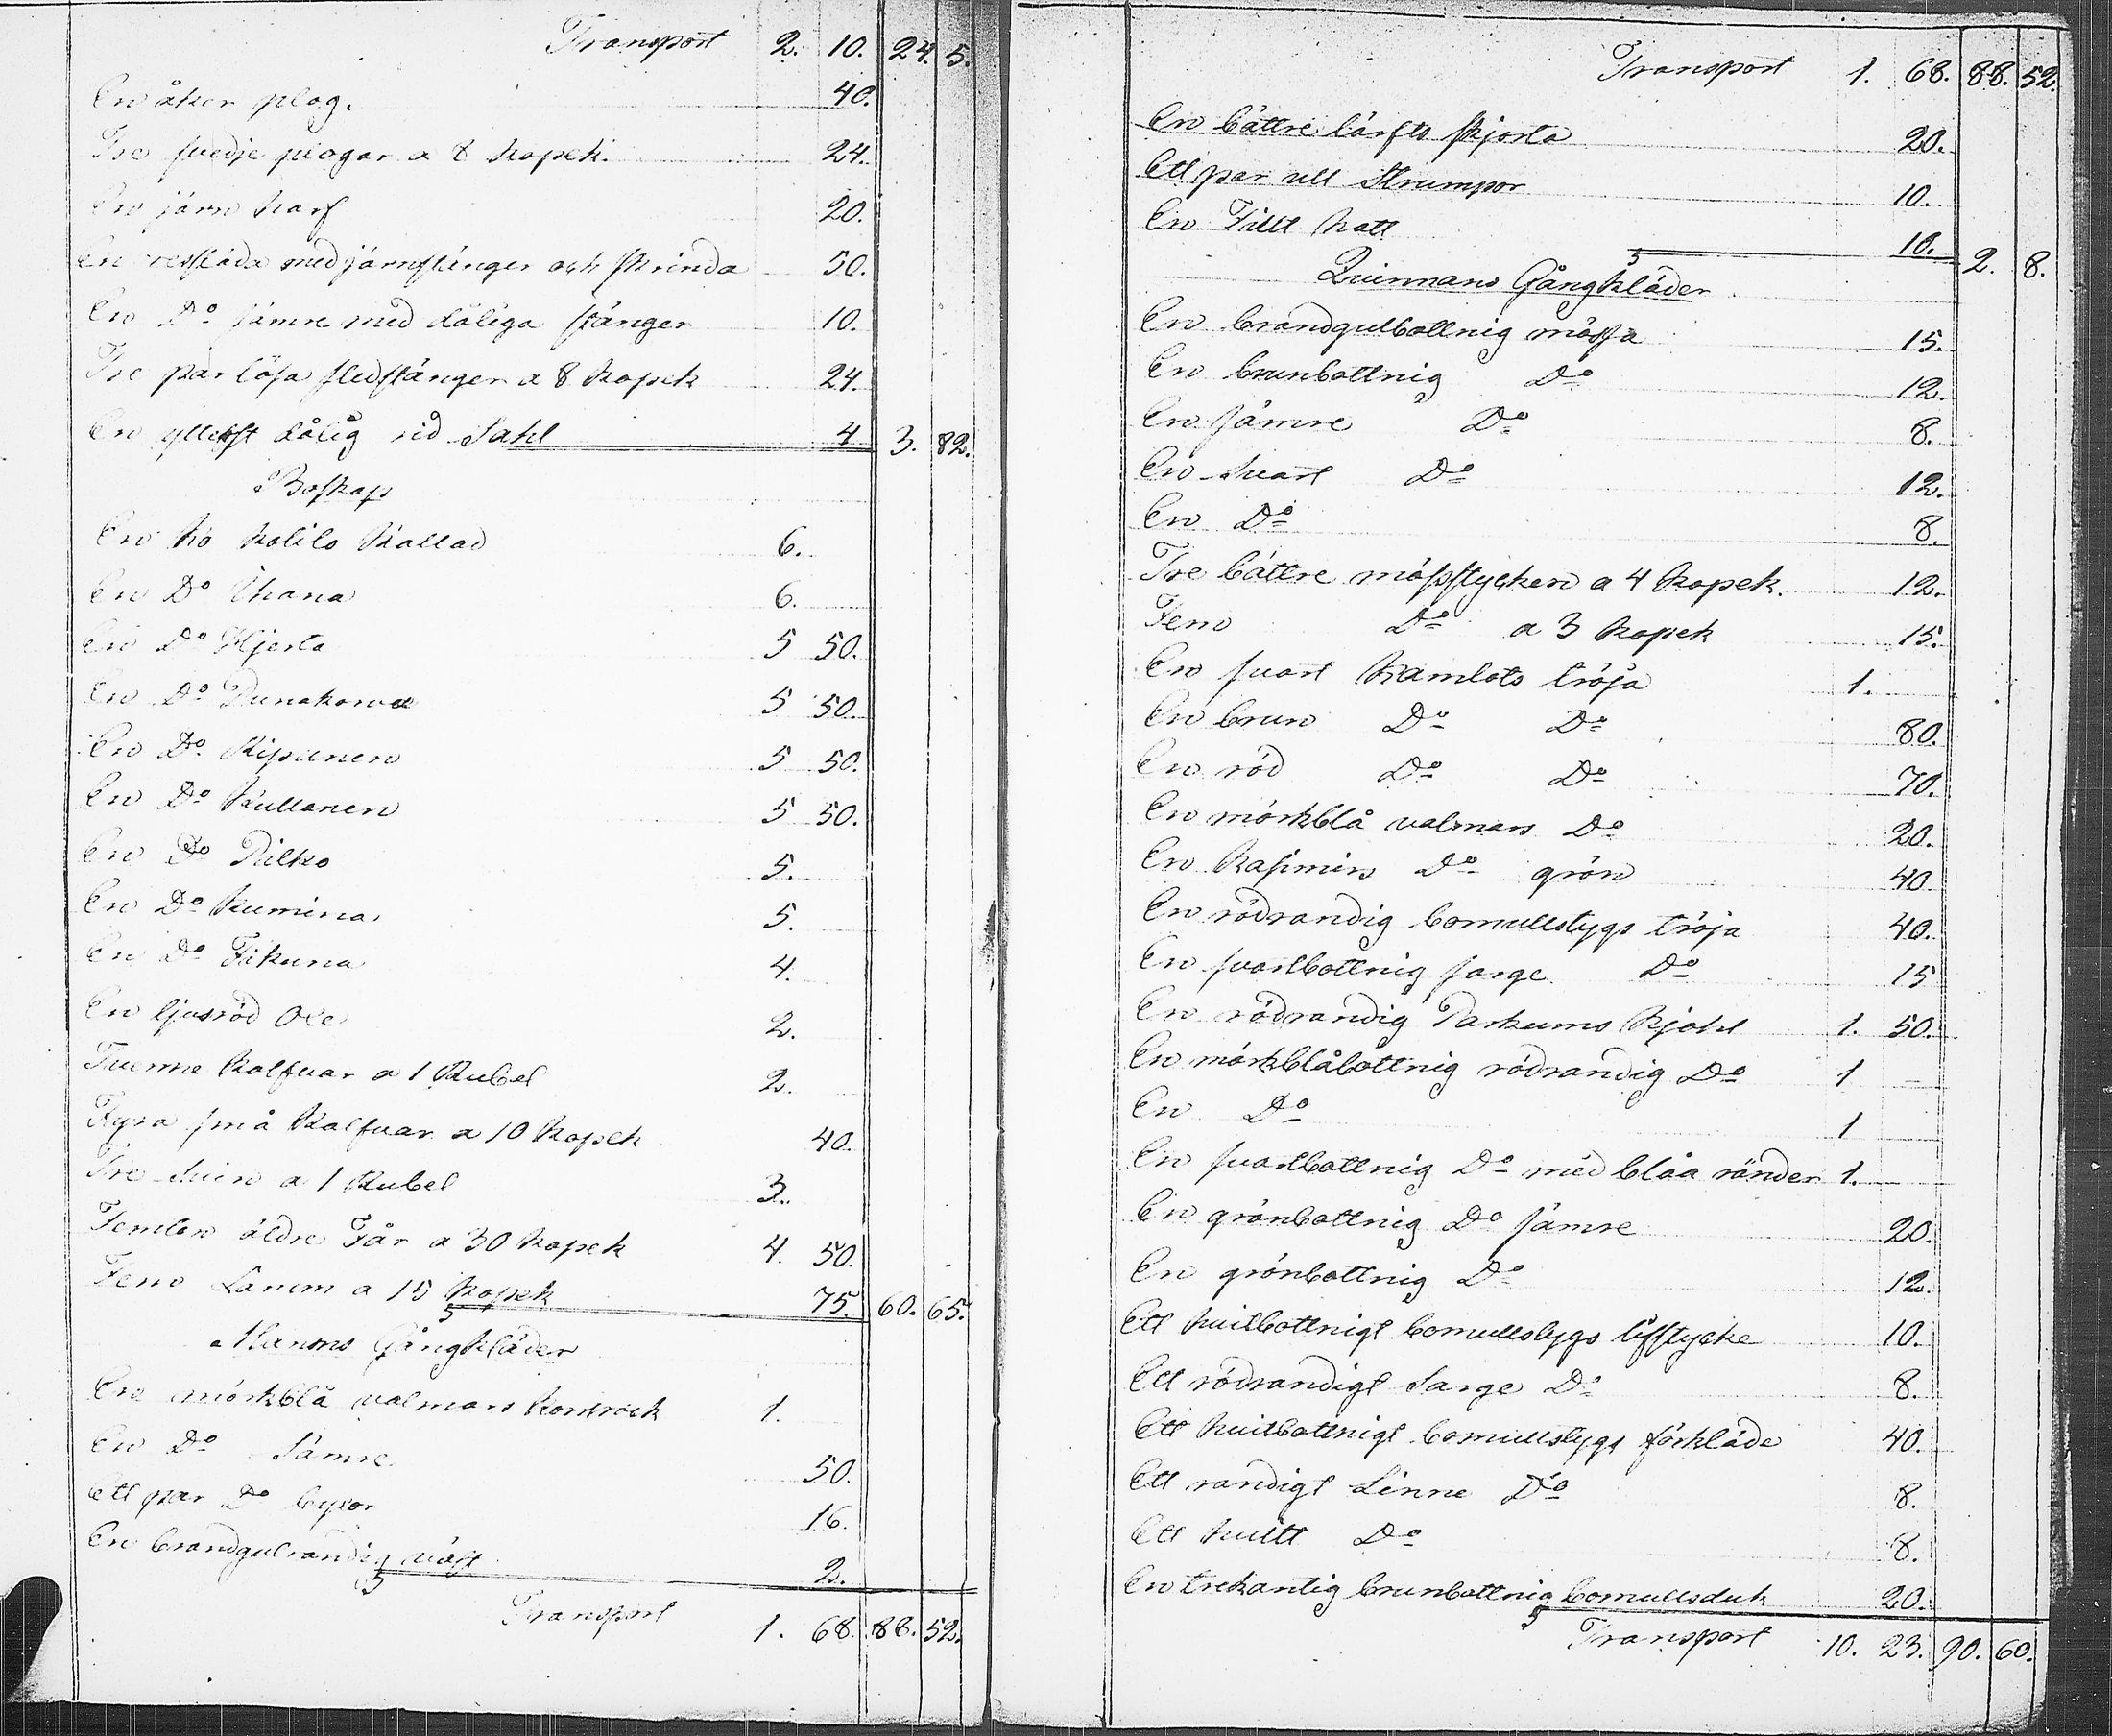 Transport 2. 10. 24. 5.
En åker plog. 40.
Tre svedje plogar a 8 kopek. 24.
En järn harf 20.
En resslåda med järnstänger och skrinda 50.
En Do sämre med dåliga stänger 10.
Tre par lösa sledstänger a 8 kopek 24.
En ytterst dålig rid Sahl 4 3. 82.
Boskap
En ko kallad 6.
En Do Ihana 6.
En Do Hjerta 5 50.
En Do Punakorva 5 50.
En Do 5 50.
En Do Kullanen 5 50.
En Do Pilko 5.
En Do Kumina 5.
En Do Tikuna 4.
En ljusröd Oxe 2.
Tvenne Kalfvar a 1 Rubel 2.
Fyra små Kalfvar a 10 kopek 40.
Tre Svin a 1 Rubel 3.
Femton äldre Får a 30 kopek 4. 50.
Fem Lamm a 15 kopek 75. 60. 65.
Manns Gångkläder
En mörkblå valmars kortrock 1.
En Do Sämre 50.
Ett par Do byxor 16.
En brandgulrandig väst 2.
Transport 1. 68. 88. 52.
Transport 1. 68. 88. 52.
En bättre lärfts skjorta 20.
Ett par ull Strumpor 10.
En Filt hatt 10. 2. 8.
Quinnans Gångkläder
En brandgulbottnig mössa 15.
En brunbottnig Do 12.
En sämre Do 8.
En Svart Do 12.
En Do 8.
Tre bättre mösstycken a 4 kopek. 12.
Fem Do a 3 kopek 15.
En svart kamlots tröja 1.
En brun Do Do 80.
En röd Do Do 70.
En mörkblå valmars Do 20.
En Kasimirs Do grön 40
En rödrandig bomullstygs tröja 40.
En svartbottnig sarge Do 15
En rödrandig Parkums Kjohl 1. 50.
En mörkblåbottnig rödrandig Do 1
En Do 1
En svartbottnig Do med blåa ränder 1.
En grönbottnig Do sämre 20.
En grönbottnig Do 12.
Ett hvitbottnigt bomullstygs lifstycke 10.
Ett rödrandigt Sarge Do 8.
Ett hvitbottnigt bomullstygs förkläde 40.
Ett randigt Linne Do 8.
Ett hvitt Do 8.
En trekantig brunbottnig bomullsduk 20.
Transport 10. 23. 90. 60.